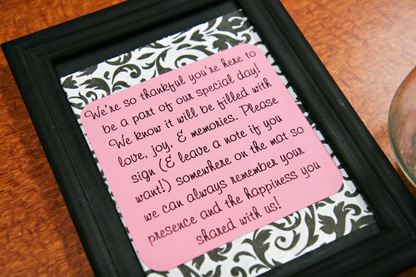 We're so thankful you're here to
be a part of our special day!
We know it will be filled with
love, joy, & memories. Please
sign (& leave a note if you
want!) somewhere on the mat so
we can always remember your
presence and the happiness you
shared with us!